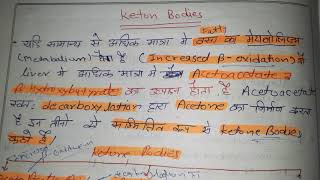 Keton Bodies
Fatt
- यदि सामान्य से अधिक मात्रा मे वसा का मेटाबोलिज्म
(metabolism) होता है (Increased β-oxidation) तो
liver मे अधिक मात्रा मे Acetoacetate व
β-hydroxybutyrate का उत्पादन होता है Acetoacetate
decarboxylation द्वारा Acetone का निर्माण करता
है इन तीनो को सम्मिलित रूप से ketone Bodies
कहते है।
Ketone Bodies